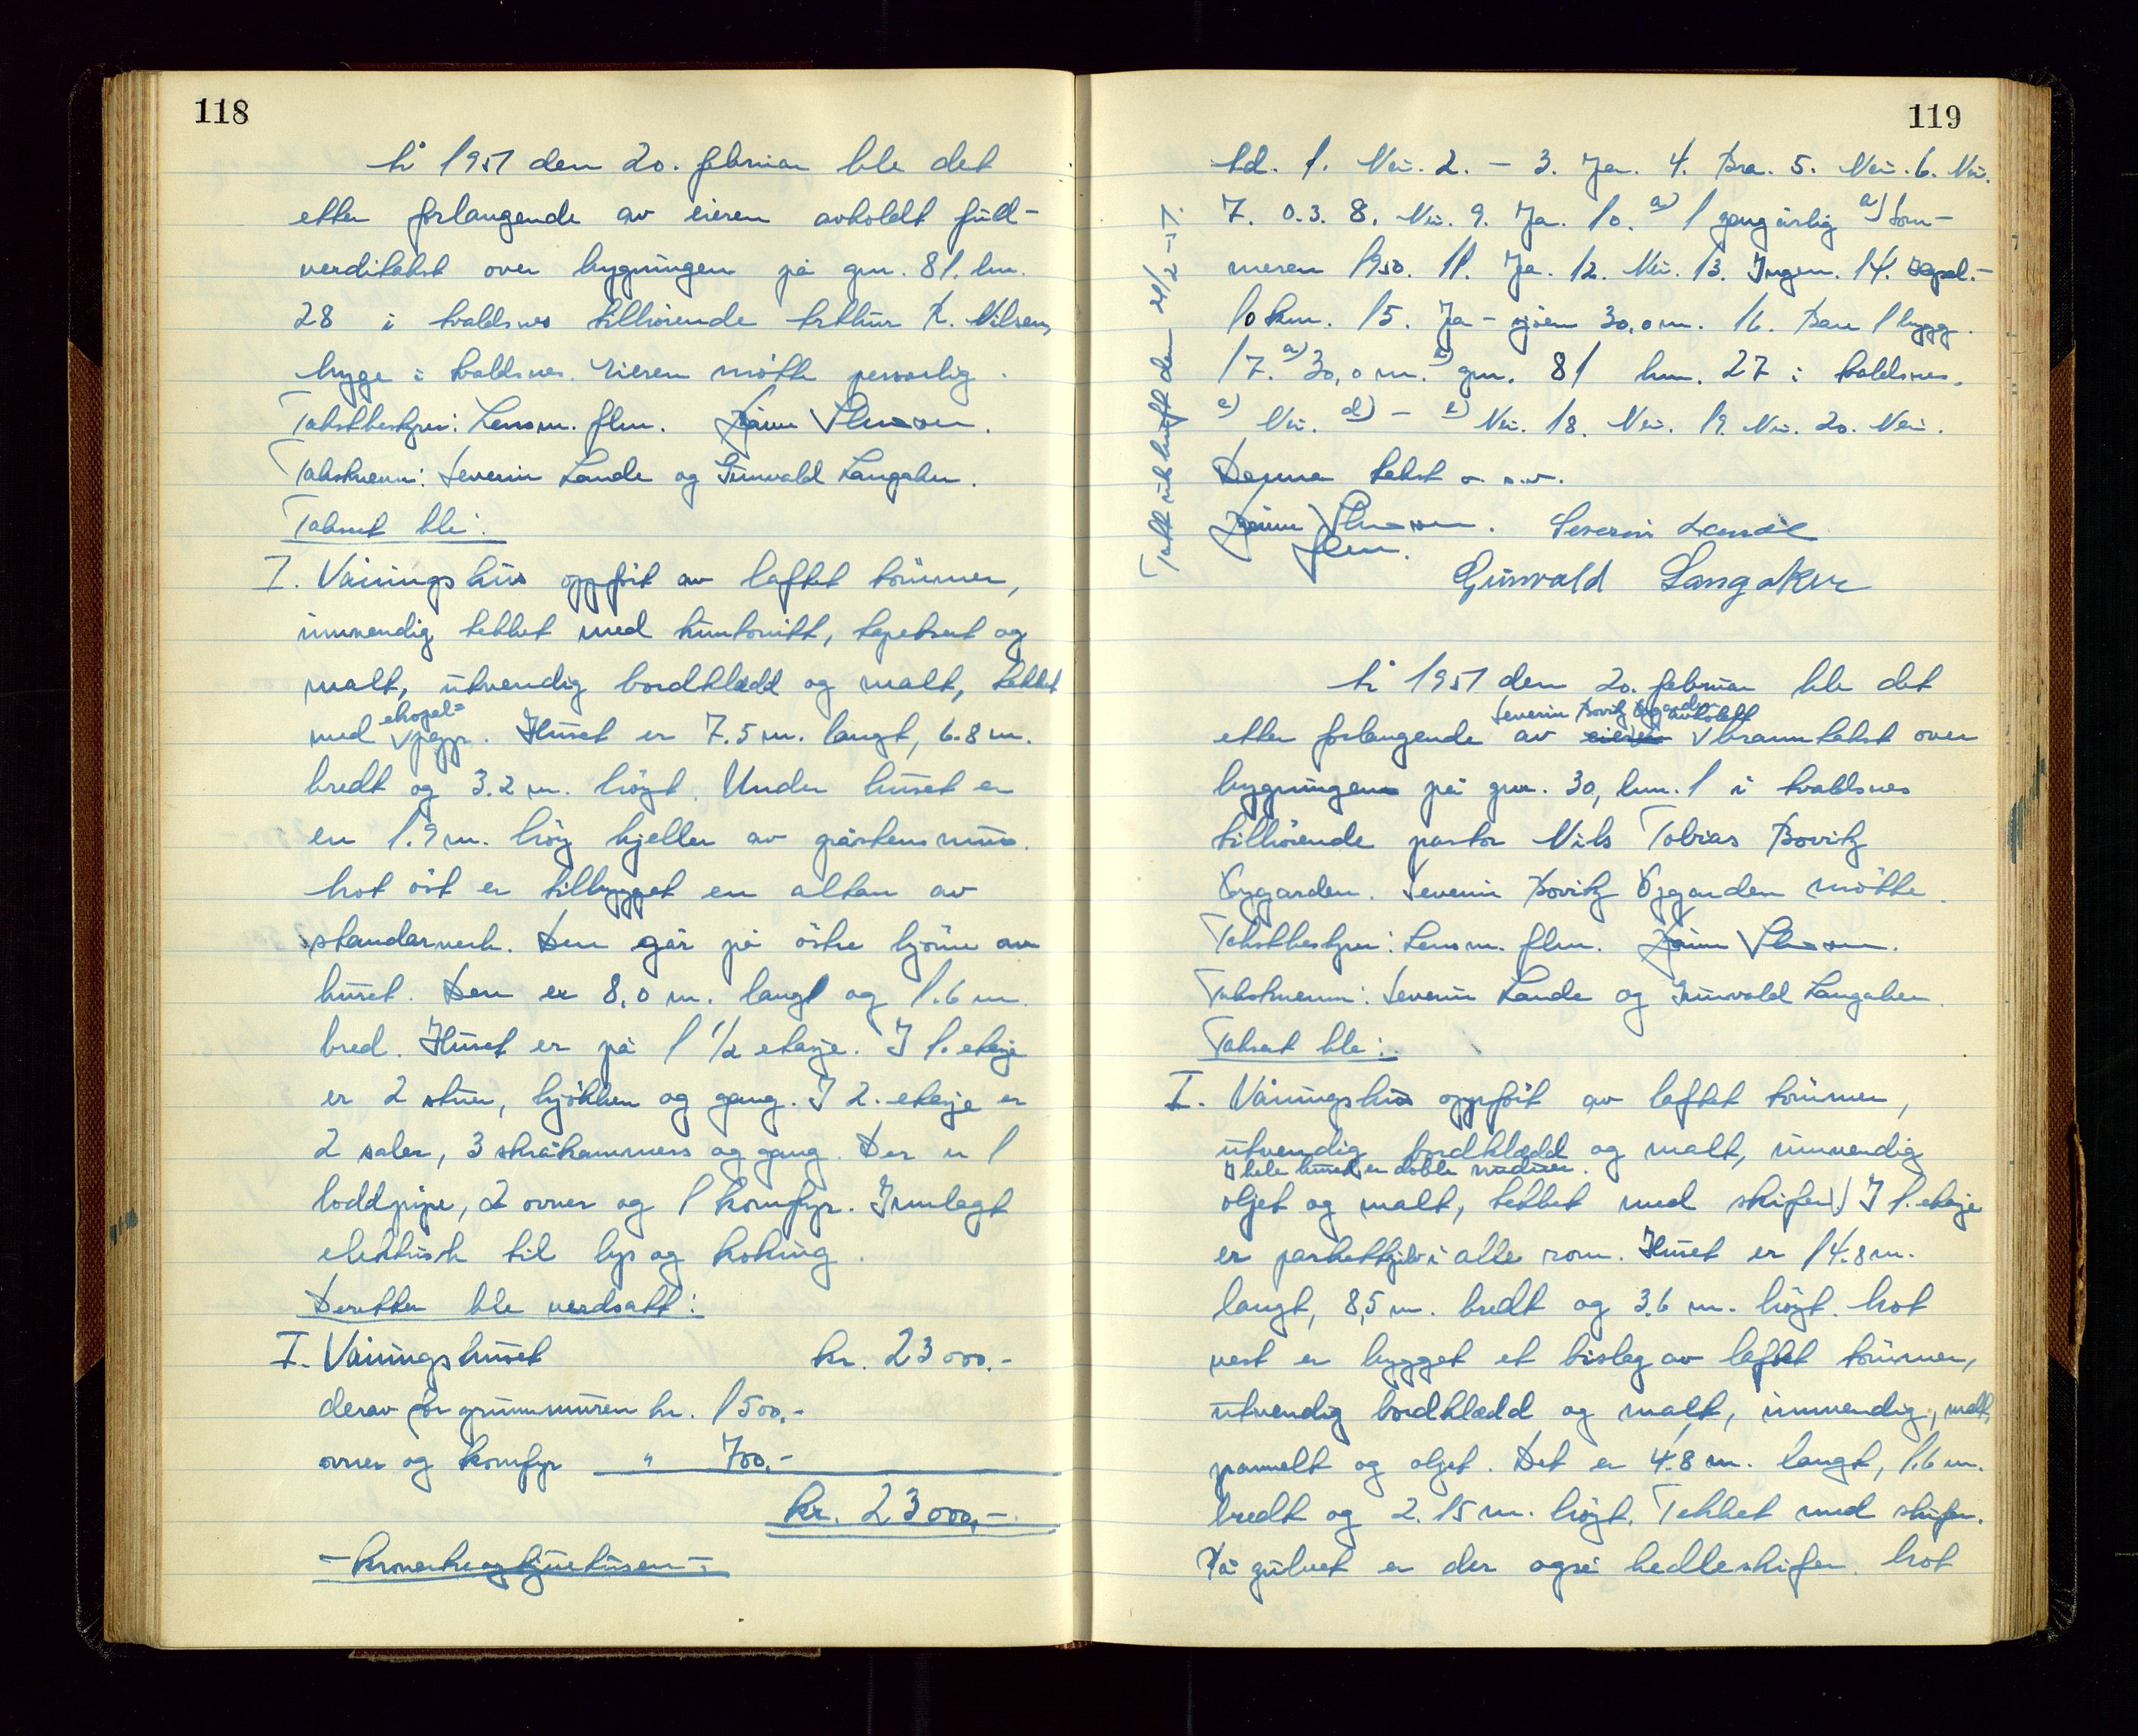 118
År 1951 den 20. februar ble det
etter forlangende av eieren avholdt full-
verditakst over bygningen på gnr. 81. bnr.
28 i Avaldsnes tilhørende Arthur K. Nilsen,
bygr i Avaldsnes. Eieren møtte personlig.
Takstbestyrer: Lensm. flm.
Takstmenn: Severin Lande og Gunvald Langaker.
Taksert ble:
I. Våningshus oppført av laftet tømmer,
innvendig tekket med huntonitt, tapetsert og
malt, utvendig bordklædd og malt, tekket
med papp. Huset er 7.5 m. langt, 6.8 m.
bredt og 3.2 m. høgt. Under huset er
en 1.9 m. høg kjeller av gråstens mur.
Mot øst er tilbygget en altan av
standarverk. Den går på østre hjørne av
huset. Den er 8,0 m. langt og 1.6 m.
bred. Huset er på 1 1/2 etasje. I 1. etasje
er 2 stuer, kjøkken og gang. I 2. etasje er
2 saler, 3 skråkammers og gang. Der er 1
loddpipe, 2 ovner og 1 komfyr. Innlagt
elektrisk til lys og koking.
Deretter ble verdsatt:
I. Våningshuset kr. 23 000.-
derav for grunnmuren kr. 1500,-
ovner og komfyr " 700,-
kr. 23 000,-
119
Ad. 1. Nei. 2. - 3. Ja. 4. Bra. 5. Nei. 6. Nei.
7. 0.3. 8. Nei. 9. Ja. 10. a) 1 gang årlig a) Som-
meren 1950. 11. Ja. 12. Nei. 13. Ingen. 14. Kopel.-
10 km. 15. Ja - sjøen 30,0 m. 16. Bare 1 bygg.
17. a) 30,0 m. b) gnr. 81 bnr. 27 i Avaldsnes.
c) Nei. d) - e) Nei. 18. Nei. 19. Nei. 20. Nei.
Denne takst o.s.v.
flm. Severin Lande
Gunvald Langaker
Takst utskrift den 21/2-51.
År 1951 den 20. februar ble det
Severin Bovitz Øygarden avholdt
etter forlangende av eieren branntakst over
bygningen på gnr. 30, bnr. 1 i Avaldsnes
tilhørende pastor Nils Tobias Bovitz
Øygarden. Severin Bovitz Øygarden møtte.
Takstbestyrer: Lensm. flm.
Takstmenn: Severin Lande og Gunvald Langaker.
Taksert ble:
I. Våningshus oppført av laftet tømmer,
utvendig bordklædd og malt, innvendig
I hele huset er doble vinduer.
oljet og malt, tekket med skifer. I 1. etasje
er parkettgulv i alle rom. Huset er 14.8 m.
langt, 8,5 m. bredt og 3.6 m. høgt. Mot
vest er bygget et bislag av laftet tømmer,
utvendig bordklædd og malt, innvendig, malt,
pannelt og oljet. Det er 4.8 m. langt, 1.6 m.
bredt og 2.15 m. høgt. Tekket med skifer.
På gulvet er der også hedleskifer. Mot